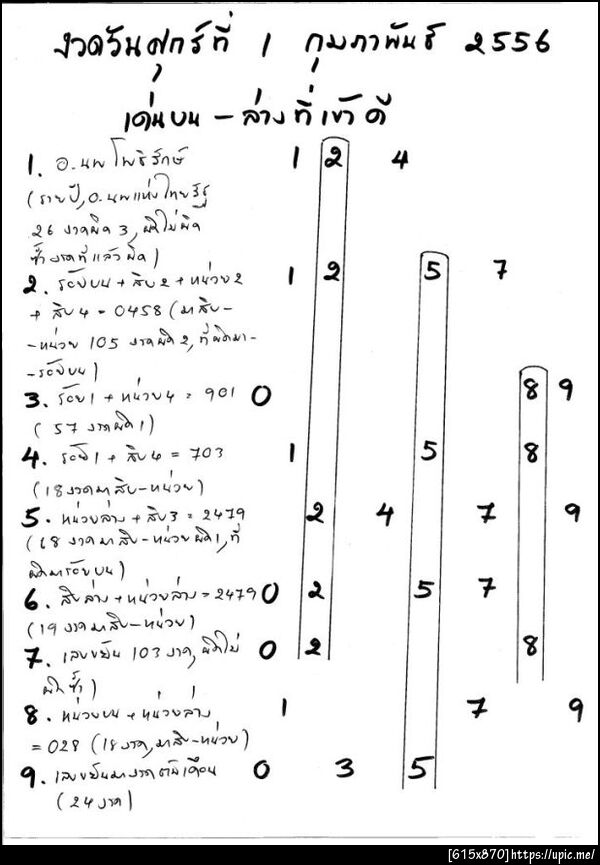 งวดวันศุกร์ที่ 1 กุมภาพันธ์ 2556
เด่นบน - ล่างที่เข้าดี
1. อ.นพ โพธิรักษ์ 1 2 4
(รายปี, อ.นพแห่งไทยรัฐ
26 งวดผิด 3, ผิดไม่ผิด
ซ้ำงวดที่แล้วผิด)
2. ร้อยบน + สิบ2 + หน่วย2 1 2 5 7
+ สิบ4 = 0458 (มาสิบ-
-หน่วย 105 งวดผิด 2, ที่ผิดมา-
-ร้อยบน)
3. ร้อย1 + หน่วย4 = 901 0 8 9
(57 งวดผิด 1)
4. ร้อย1 + สิบ4 = 703 1 5 8
(18 งวดมาสิบ-หน่วย)
5. หน่วยล่าง + สิบ3 = 2479 2 4 7 9
(18 งวดมาสิบ-หน่วยผิด1, ที่
ผิดมาร้อยบน)
6. สิบล่าง + หน่วยล่าง = 2479 0 2 5 7
(19 งวดมาสิบ-หน่วย)
7. เลขขยัน 103 งวด, ผิดไม่ 0 2 8
ผิดซ้ำ)
8. หน่วยบน + หน่วยล่าง 1 7 9
= 028 (18 งวด, มาสิบ-หน่วย)
9. เลขขยันมางวดต้นเดือน 0 3 5
(24 งวด)
[615x870]https://upic.me/